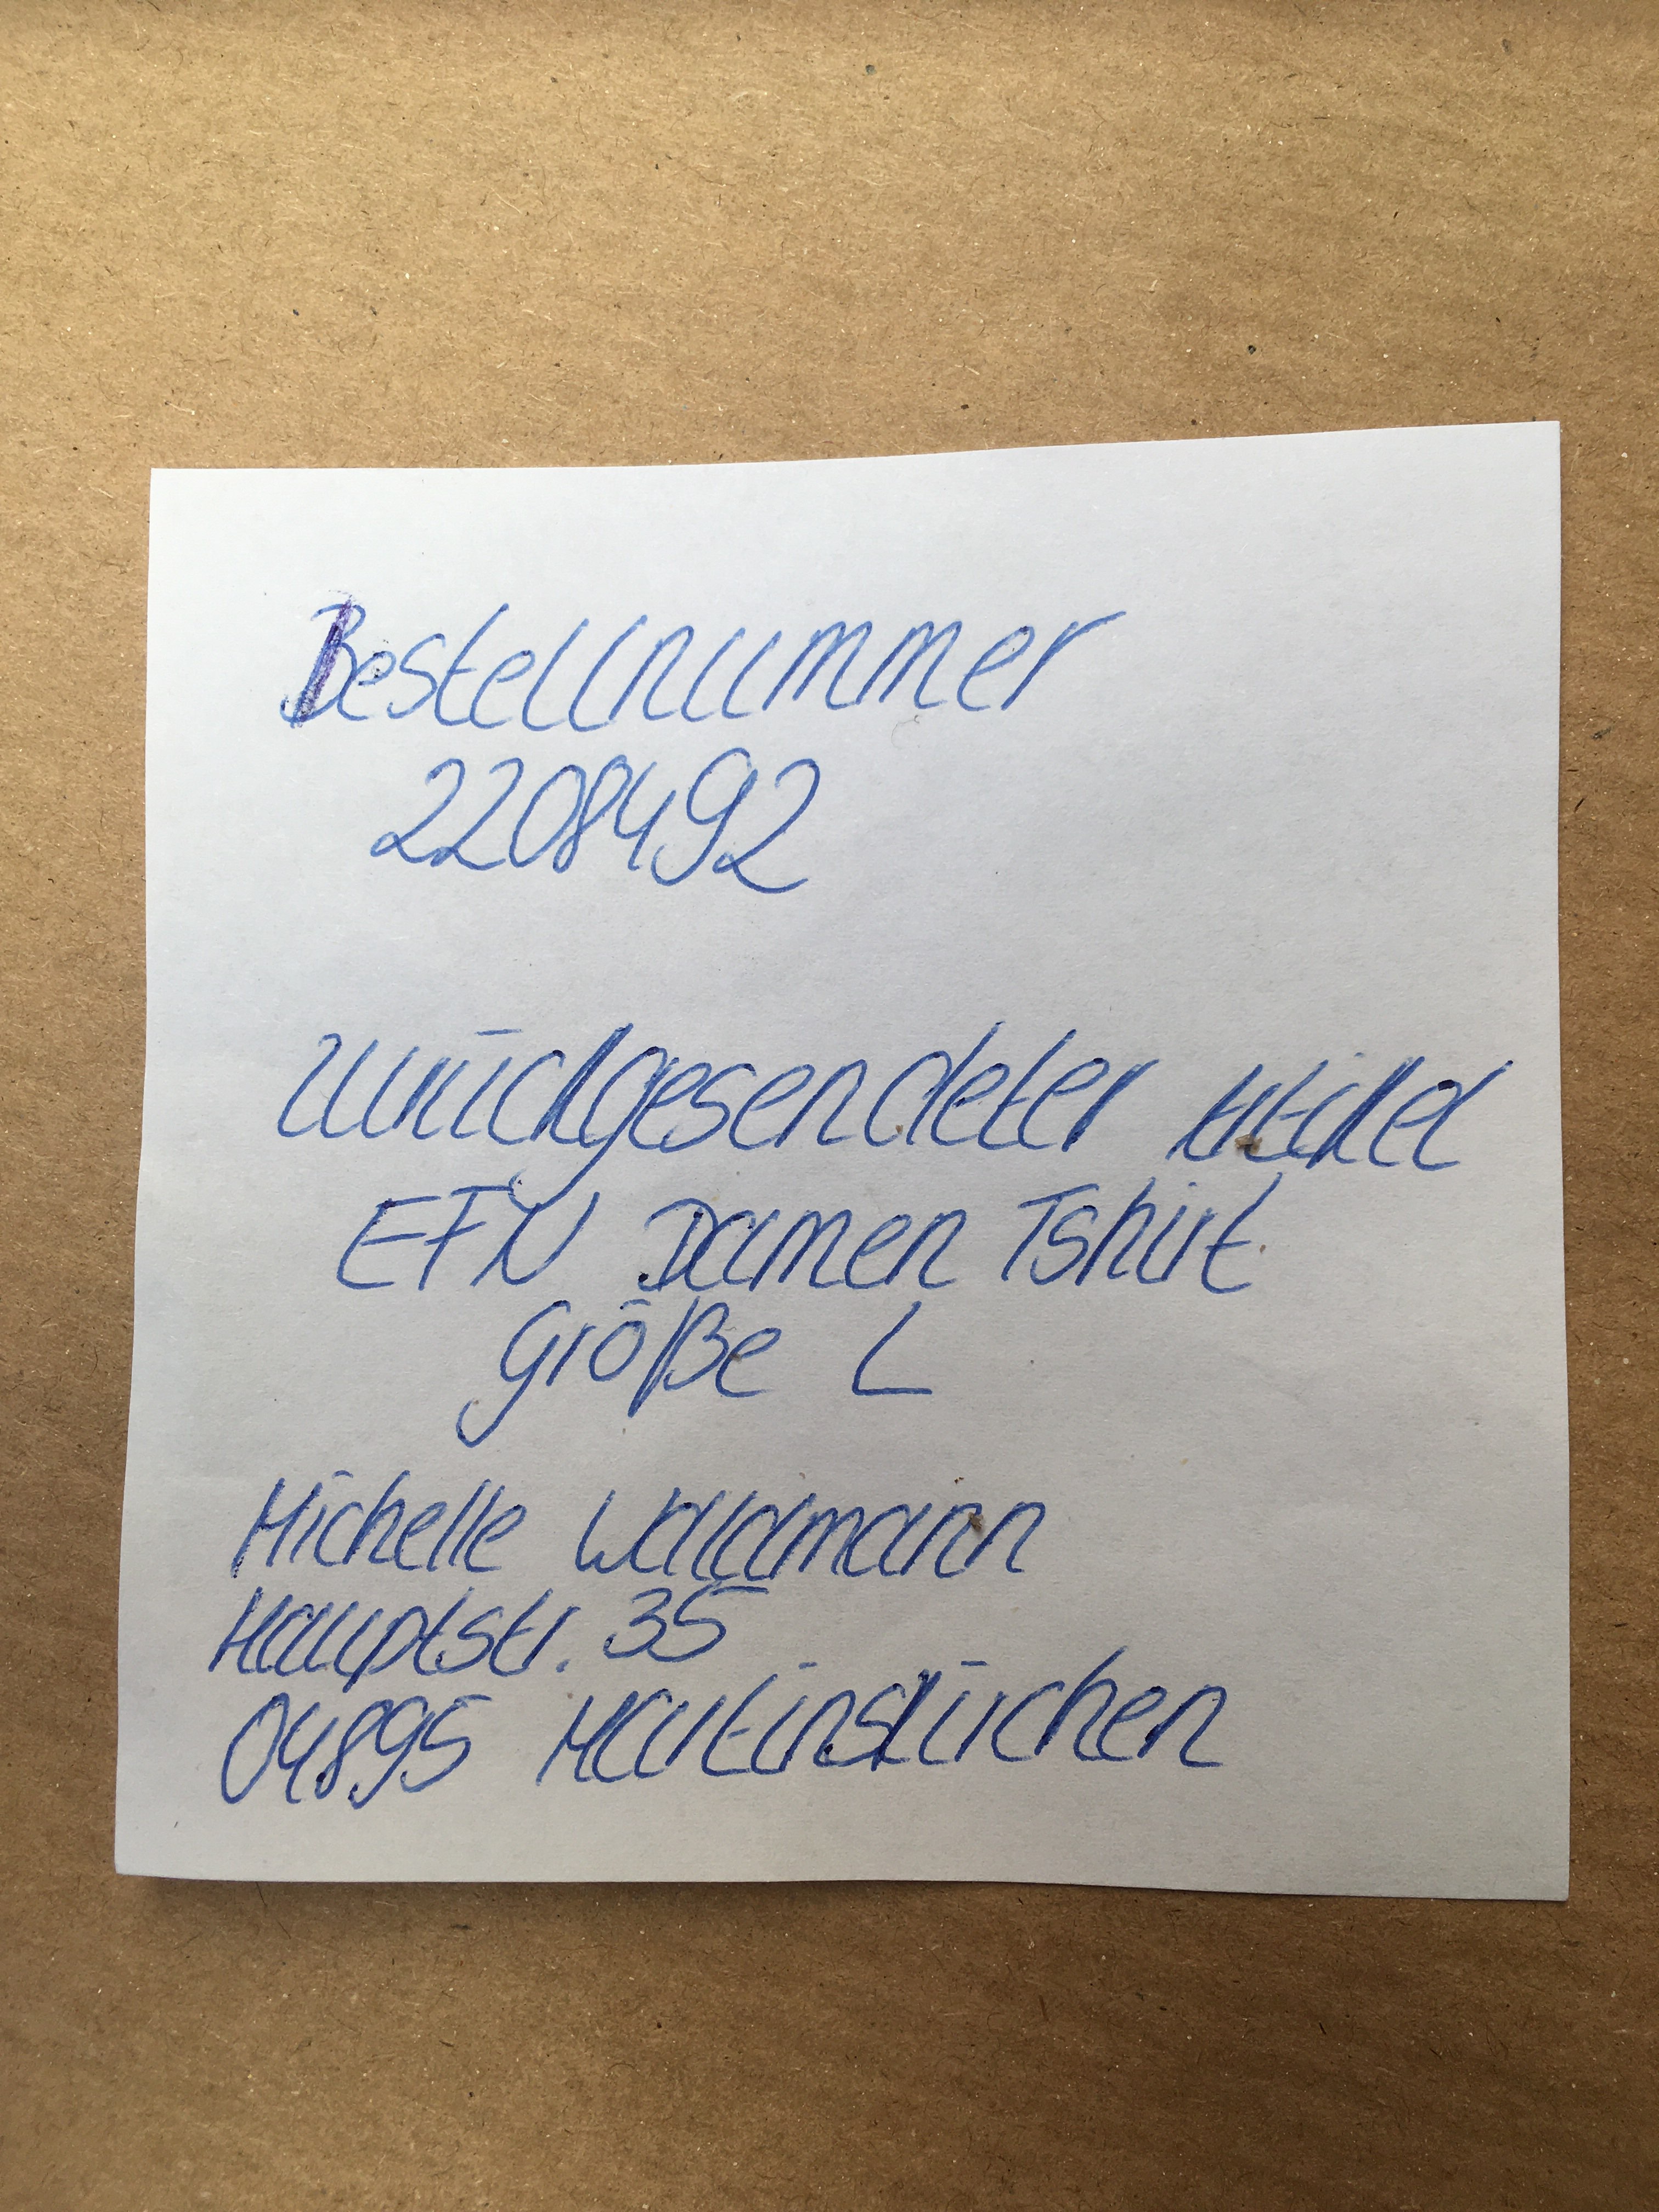 Bestellnummer
2208492
zurückgesendeter Artikel
EFN Damen Tshirt
Größe L
Michelle Waldmann
Hauptstr. 35
04895 Martinskirchen